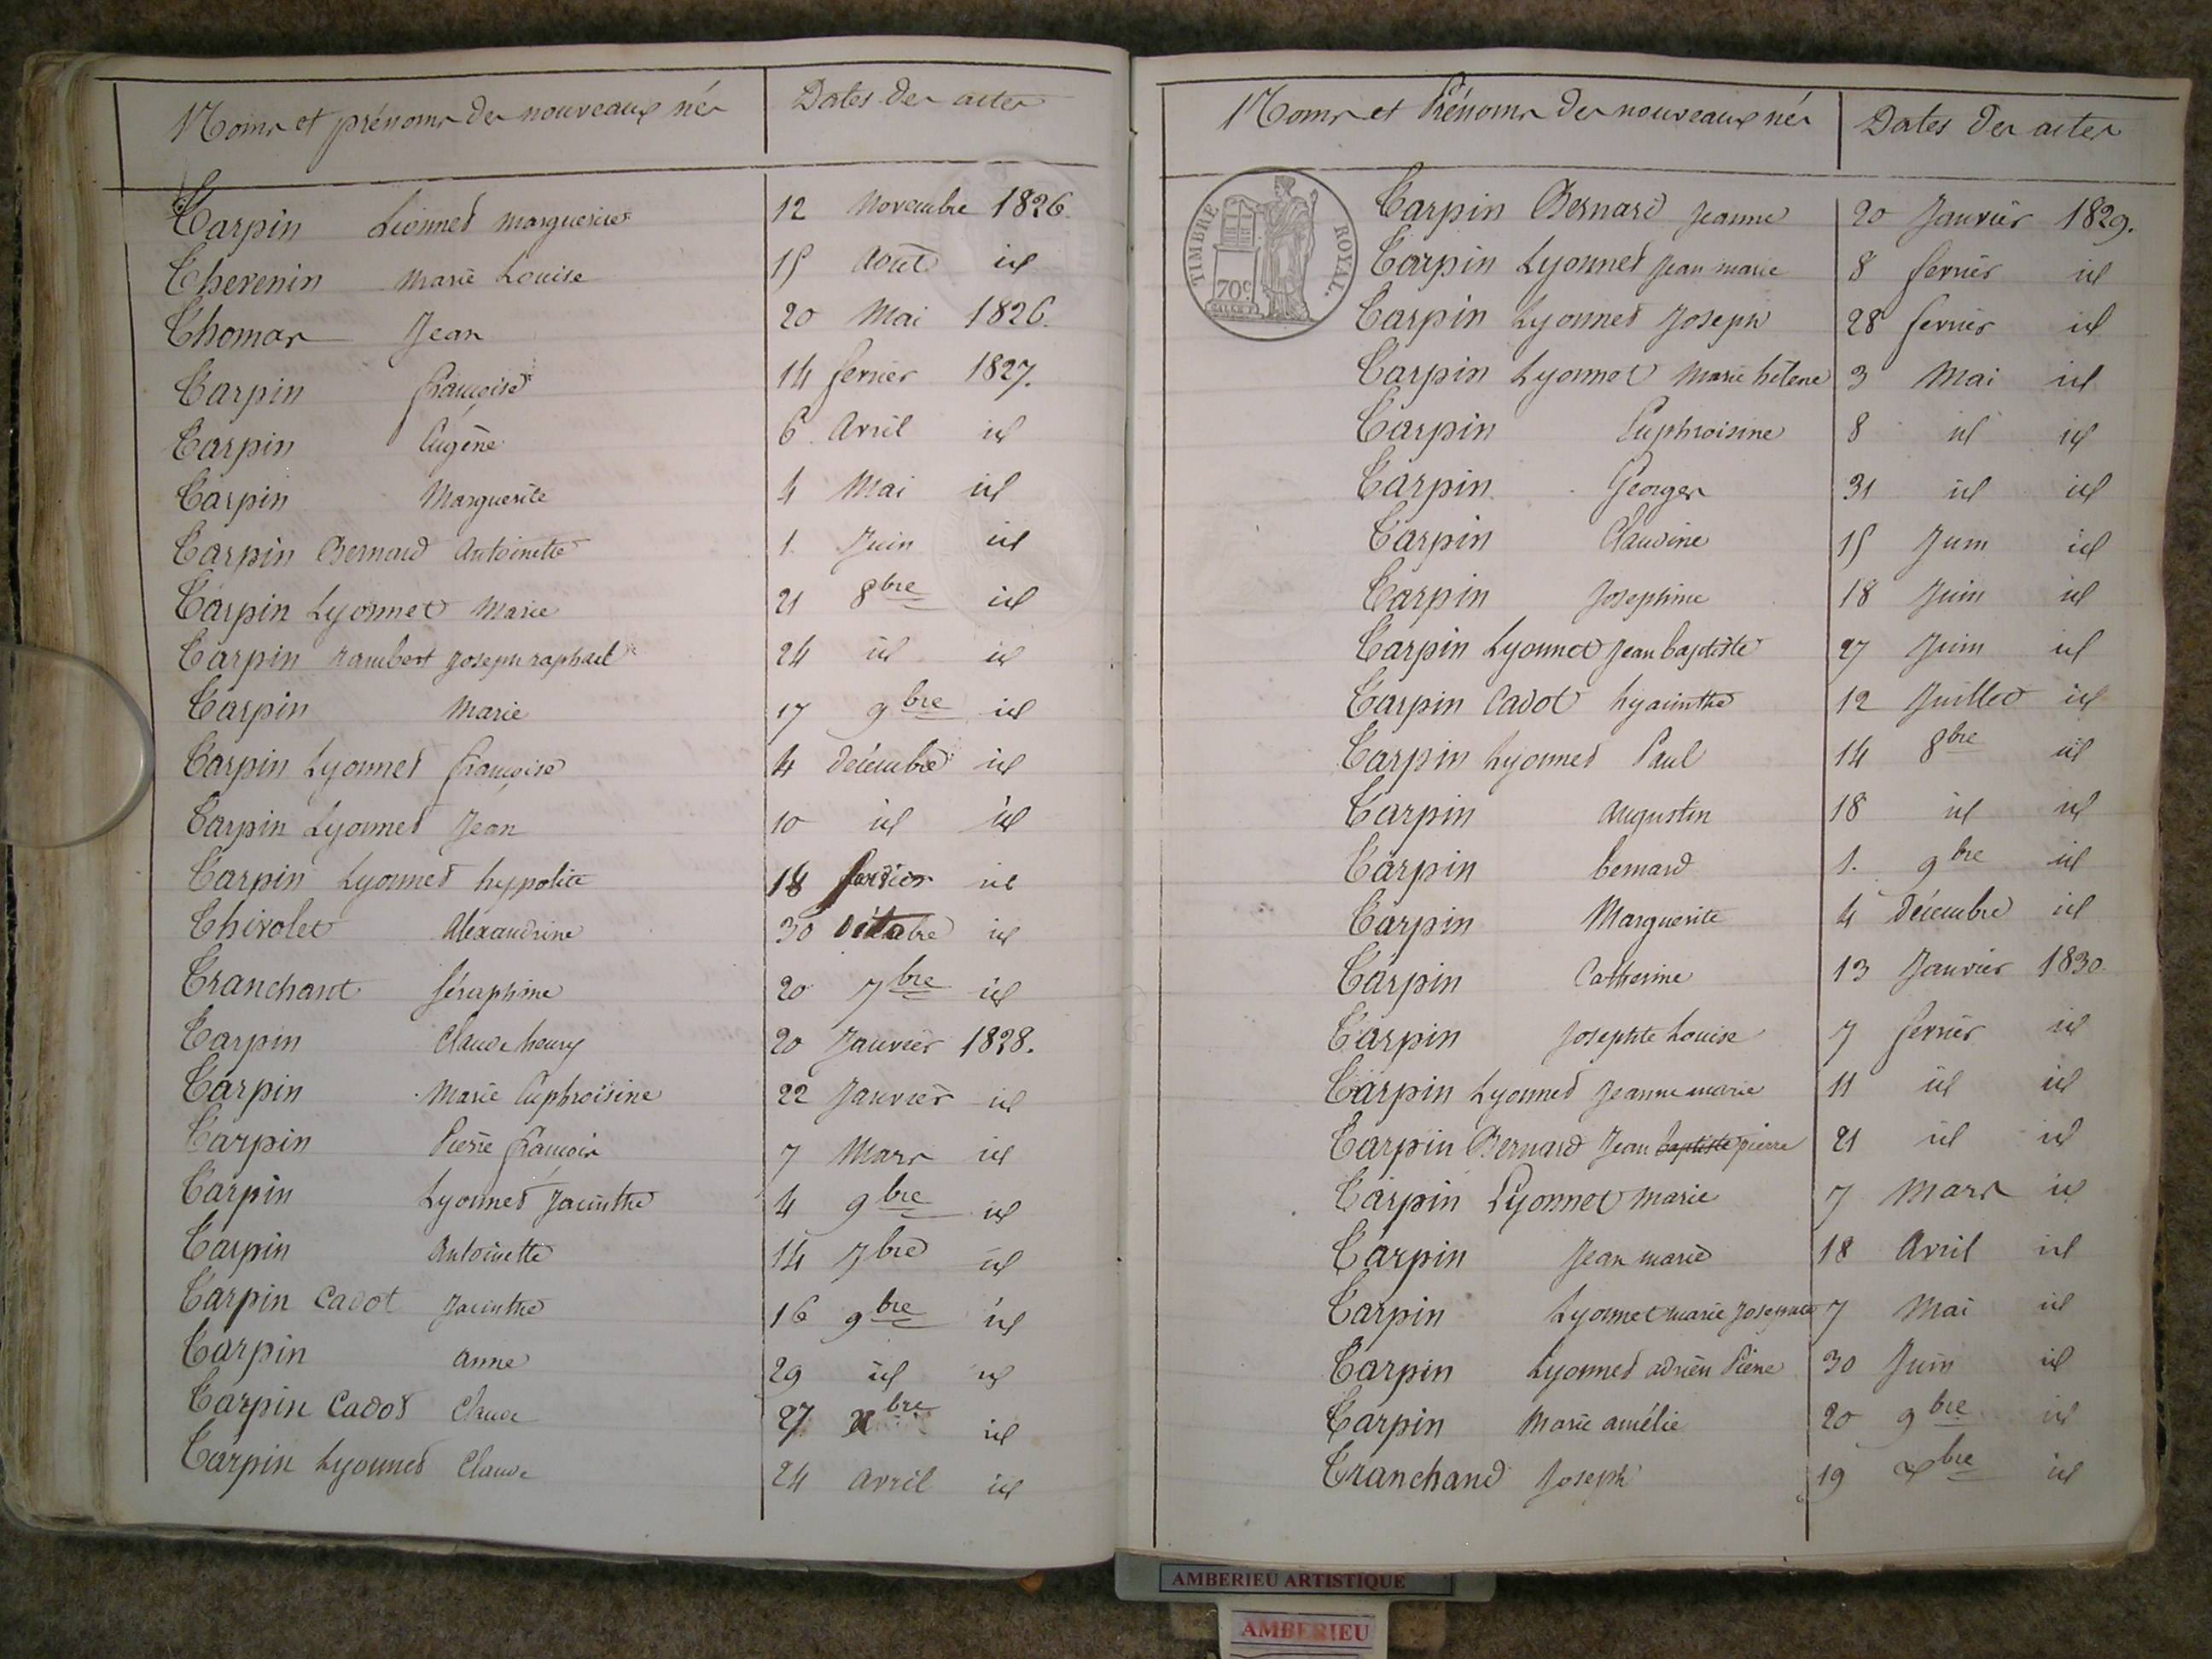 Noms et prénoms des nouveaux nés Dates des actes
Tarpin Lionnet Marguerite 12 Novembre 1826.
Thevenin Marie Louise 15 Août id
Thomas Jean 20 Mai 1826.
Tarpin françoise 14 fevrier 1827.
Tarpin Eugène 6 Avril id
Tarpin Marguerite 4 Mai id
Tarpin Bernard Antoinette 1. Juin id
Tarpin Lyonnet Marie 21 8bre id
Tarpin Rambert Joseph raphael 24 id id
Tarpin Marie 17 9bre id
Tarpin Lyonnet françoise 4 décembre id
Tarpin Lyonnet Jean 10 id id
Tarpin Lyonnet hypolite 18 fevrier id
Thivolet Alexandrine 30 id
Tranchant Séraphine 20 7bre id
Tarpin Claude henry 20 Janvier 1828.
Tarpin Marie Euphroisine 22 Janvier id
Tarpin Pierre françois 7 Mars id
Tarpin Lyonnet Jacinthe 4 9bre id
Tarpin Antoinette 14 7bre id
Tarpin Cadot Jacinthe 16 9bre id
Tarpin Anne 29 id id
Tarpin Cadot Claude 27 xbre id
Tarpin Lyonnet Claude 24 avril id
Noms et Prénoms des nouveaux nés Dates des actes
TIMBRE ROYAL.
70c
Tarpin Bernard Jeanne 20 Janvier 1829.
Tarpin Lyonnet Jean marie 8 fevrier id
Tarpin Lyonnet Joseph 28 fevrier id
Tarpin Lyonnet Marie hélene 3 Mai id
Tarpin Euphroisine 8 id id
Tarpin Georges 31 id id
Tarpin Claudine 15 Juin id
Tarpin Josephine 18 Juin id
Tarpin Lyonnet Jean baptiste 27 Juin id
Tarpin Cadot hyacinthe 12 Juillet id
Tarpin Lyonnet Paul 14 8bre id
Tarpin Augustin 18 id id
Tarpin bernard 1. 9bre id
Tarpin Marguerite 4 décembre id
Tarpin Catherine 13 Janvier 1830.
Tarpin Josephte Louise 7 fevrier id
Tarpin Lyonnet Jeanne marie 11 id id
Tarpin Bernard Jean baptiste pierre 21 id id
Tarpin Lyonnet Marie 7 Mars id
Tarpin Jean marie 18 Avril id
Tarpin Lyonnet marie 7 Mai id
Tarpin Lyonnet adrien Pierre 30 Juin id
Tarpin Marie amélie 20 9bre id
Tranchand Joseph 19 xbre id
AMBERIEU ARTISTIQUE
AMBERIEU